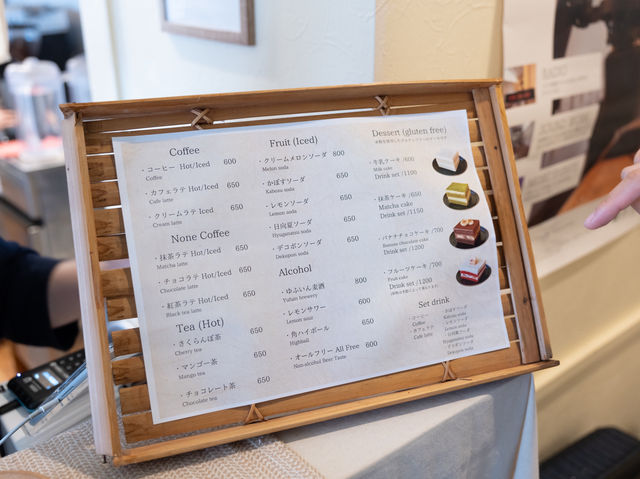 Coffee
・コーヒー Hot/Iced 600
Coffee
・カフェラテ Hot/Iced 650
Cafe latte
・クリームラテ Iced 650
Cream latte
None Coffee
・抹茶ラテ Hot/Iced 650
Matcha latte
・チョコラテ Hot/Iced 650
Chocolate latte
・紅茶ラテ Hot/Iced 650
Black tea latte
Tea (Hot)
・さくらんぼ茶 650
Cherry tea
・マンゴー茶 650
Mango tea
・チョコレート茶 650
Chocolate tea
Fruit (Iced)
・クリームメロンソーダ 800
Melon soda
・かぼすソーダ 650
Kabosu soda
・レモンソーダ 650
Lemon soda
・日向夏ソーダ 650
Hyuganatsu soda
・デコポンソーダ 650
Dekopon soda
Alcohol
・ゆふいん麦酒 800
Yufuin brewery
・レモンサワー 600
Lemon sour
・角ハイボール 650
Highball
・オールフリー All Free 600
Non-alcohol Beer Taste
Dessert (gluten free)
・牛乳ケーキ /600
Milk cake
Drink set /1100
・抹茶ケーキ /650
Matcha cake
Drink set /1150
・バナナチョコケーキ /700
Banana chocolate cake
Drink set /1200
・フルーツケーキ /700
Fruit cake
Drink set /1200
Set drink
・コーヒー
Coffee
・カフェラテ
Cafe latte
・かぼすソーダ
Kabosu soda
・レモンソーダ
Lemon soda
・日向夏ソーダ
Hyuganatsu soda
・デコポンソーダ
Dekopon soda